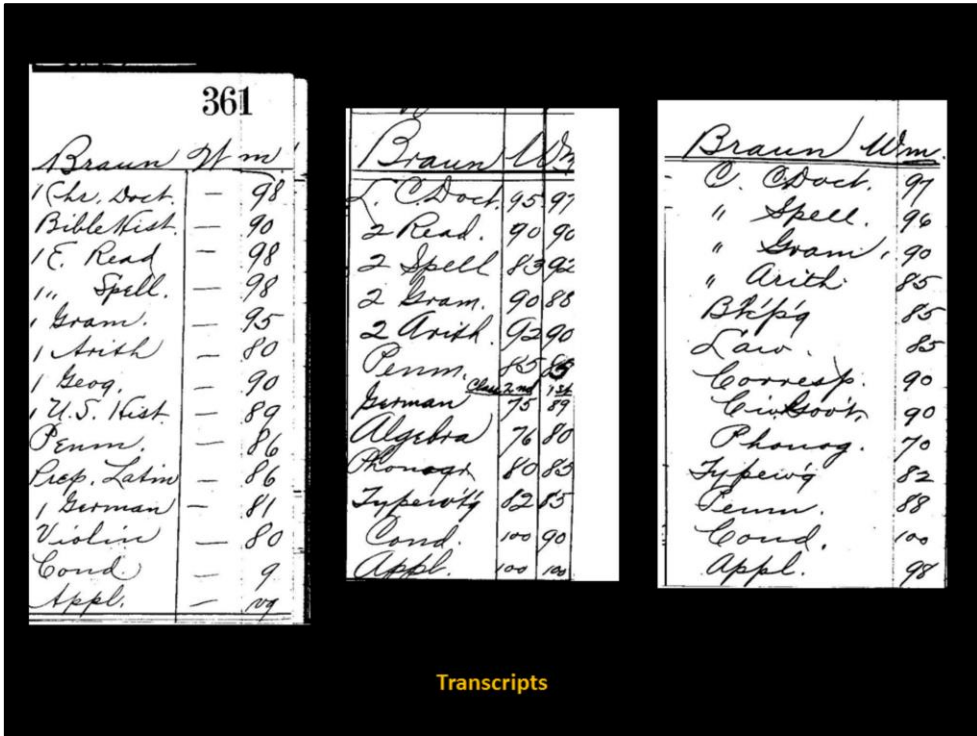 361
Braun Wm
1 Chr. Doct. — 98
Bible Hist. — 90
1 E. Read — 98
1 " Spell. — 98
1 Gram. — 95
1 Arith — 80
1 Geog. — 90
1 U.S. Hist. — 89
Penm. — 86
Prep. Latin — 86
1 German — 81
Violin — 80
Cond. — g
Appl. — vg
Braun Wm
C. Doct. 95 97
2 Read. 90 90
2 Spell 83 92
2 Gram. 90 88
2 Arith. 92 90
Penm. 85 85
Class 2nd 1st
German 75 89
Algebra 76 80
Phonogr 80 85
Typewt'g 82 85
Cond. 100 90
Appl. 100 100
Braun Wm.
C. C. Doct. 97
" Spell. 96
" Gram. 90
" Arith 85
Bk'p'g 85
Law. 85
Corresp. 90
Civ. Gov't. 90
Phonog. 70
Typew'g 82
Penm. 88
Cond. 100
Appl. 98
Transcripts